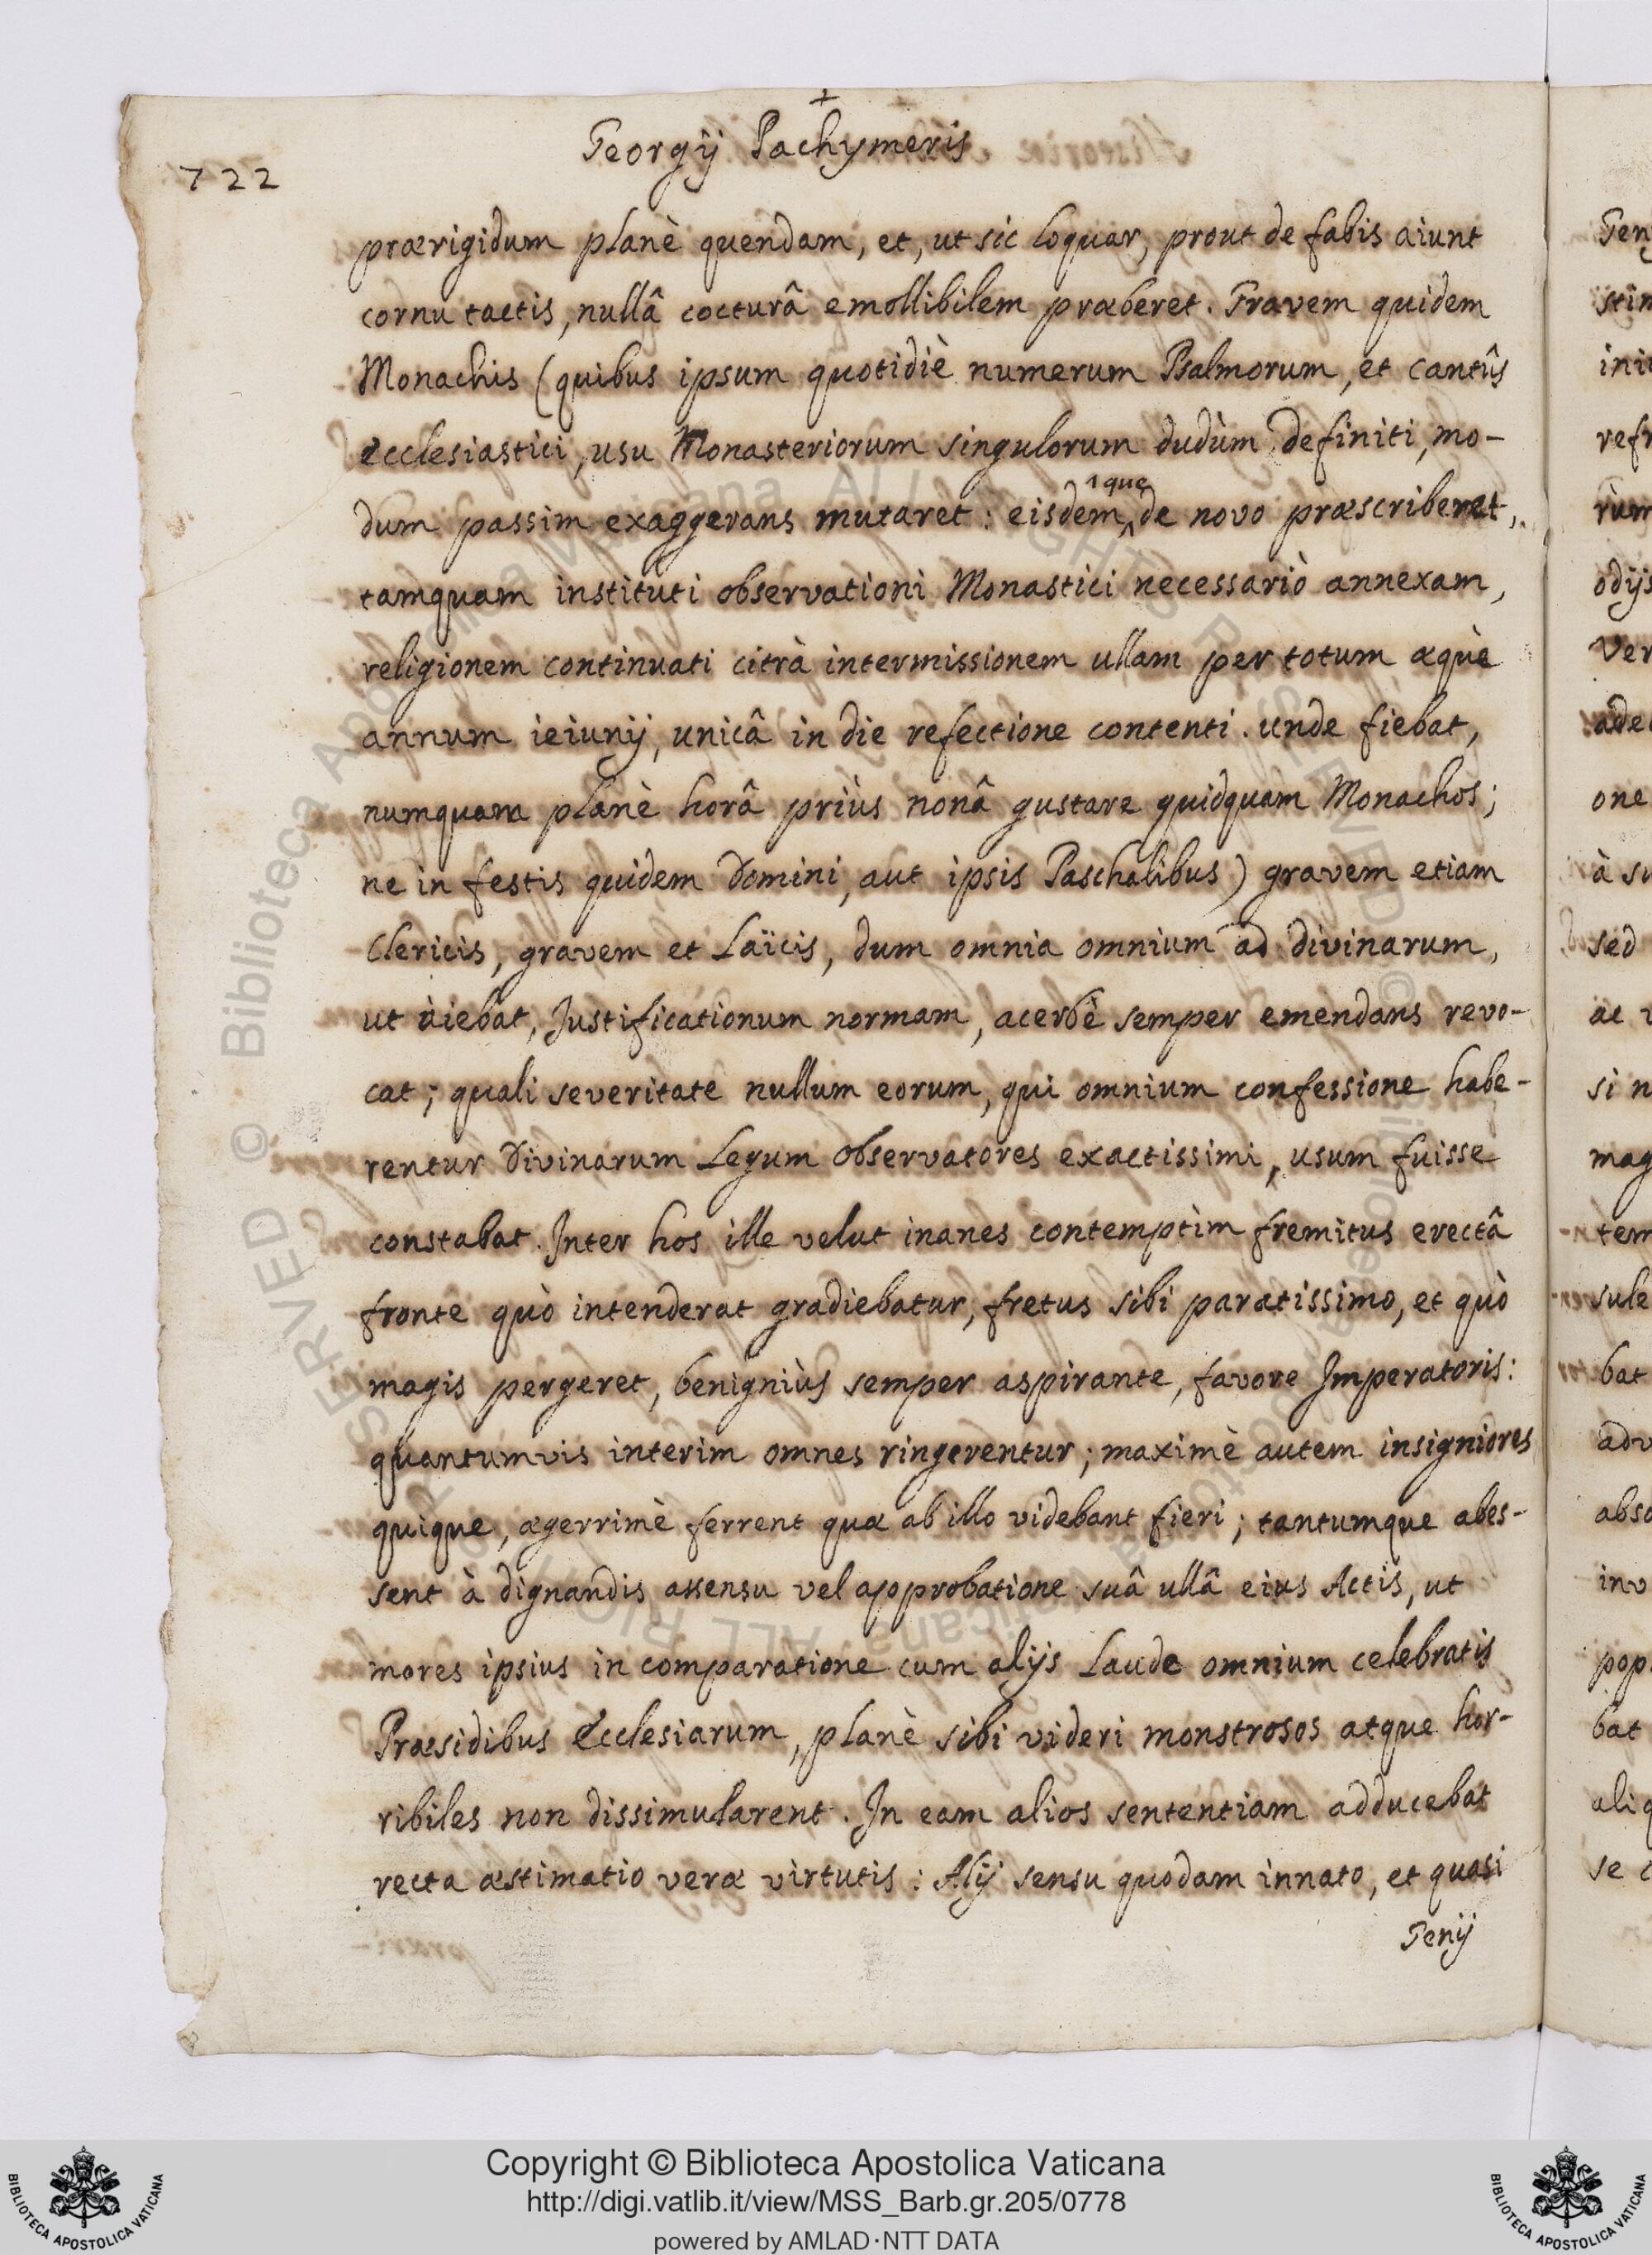 +
Georgij Pachymeris
722
prærigidum planè quendam, et, ut sic loquar, prout de fabis aiunt
cornu tactis, nullâ cocturâ emollibilem præberet. Gravem quidem
Monachis (quibus ipsum quotidiè numerum Psalmorum, et cantûs
ecclesiastici, usu Monasteriorum singulorum dudùm definiti, mo-
dum passim exaggerans mutaret: eisdem^que de novo præscriberet,
tamquam instituti observationi Monastici necessariò annexam,
religionem continuati citrà intermissionem ullam per totum æquè
annum ieiunij, unicâ in die refectione contenti. unde fiebat,
numquam planè horâ priùs nonâ gustare quidquam Monachos;
ne in festis quidem Domini, aut ipsis Paschalibus) gravem etiam
Clericis, gravem et Laïcis, dum omnia omnium ad divinarum,
ut àiebat, Justificationum normam, acerbè semper emendans revo-
cat; quali severitate nullum eorum, qui omnium confessione habe-
rentur Divinarum Legum observatores exactissimi, usum fuisse
constabat. Inter hos ille velut inanes contemptìm fremitus erectâ
fronte quò intenderat gradiebatur, fretus sibi paratissimo, et quò
magis pergeret, benigniùs semper aspirante, favore Imperatoris:
quantumvis interim omnes ringerentur; maximè autem insigniores
quique, ægerrimè ferrent quæ ab illo videbant fieri; tantumque abes-
sent à dignandis assensu vel approbatione suâ ullâ eius Actis, ut
mores ipsius in comparatione cum alijs Laude omnium celebratis
Præsidibus Ecclesiarum, planè sibi videri monstrosos atque hor-
ribiles non dissimularent. In eam alios sententiam adducebat
recta æstimatio veræ virtutis: Alij sensu quodam innato, et quasi
Genij
Copyright © Biblioteca Apostolica Vaticana
http://digi.vatlib.it/view/MSS_Barb.gr.205/0778
powered by AMLAD·NTT DATA
BIBLIOTECA APOSTOLICA VATICANA
BIBLIOTECA APOSTOLICA VATICANA